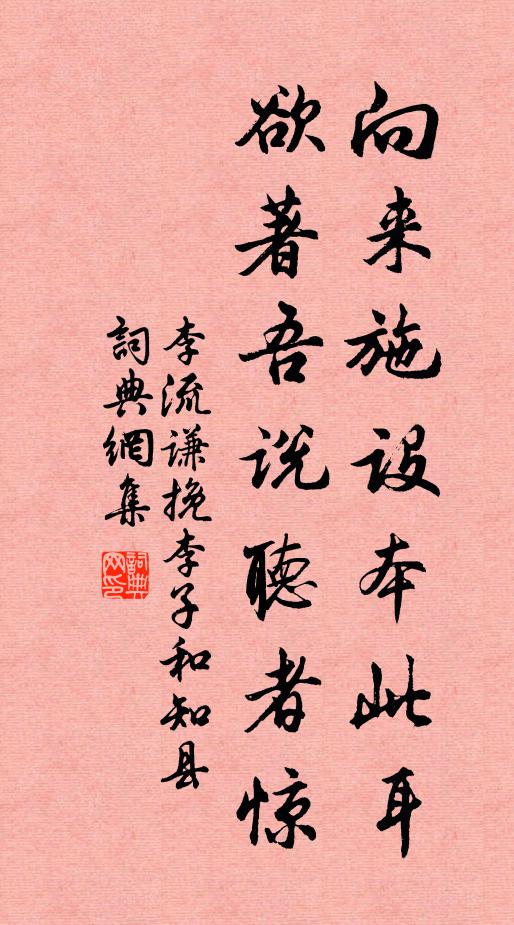 向来施设本此耳
欲著吾说聽者惊
李流谦挽李子和知县
詞典網集
詞典网印